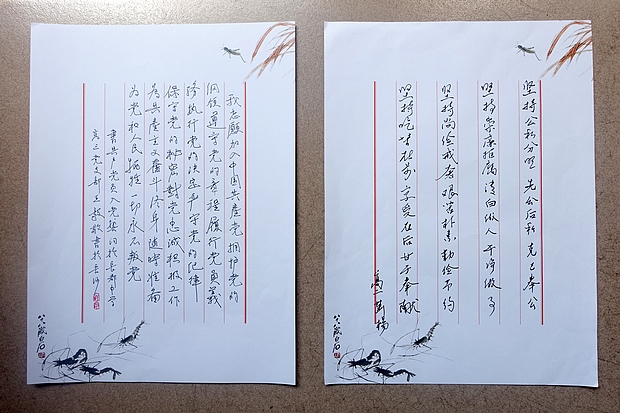 我志願加入中国共產党拥护党的
纲领遵守党的章程履行党员義
務执行党的决定严守党的纪律
保守党的秘密對党忠诚积极工作
為共產主义奮斗终身随時准备
为党和人民牺牲一切永不叛党
書共产党员入党誓词於長郡中学
高三党支部王書於長沙
白石
坚持公私分明 先公后私 克己奉公
坚持崇廉拒腐 清白做人 干净做事
坚持尚俭戒奢 艰苦朴素 勤俭节约
坚持吃苦在前 享受在后 甘于奉献
白石